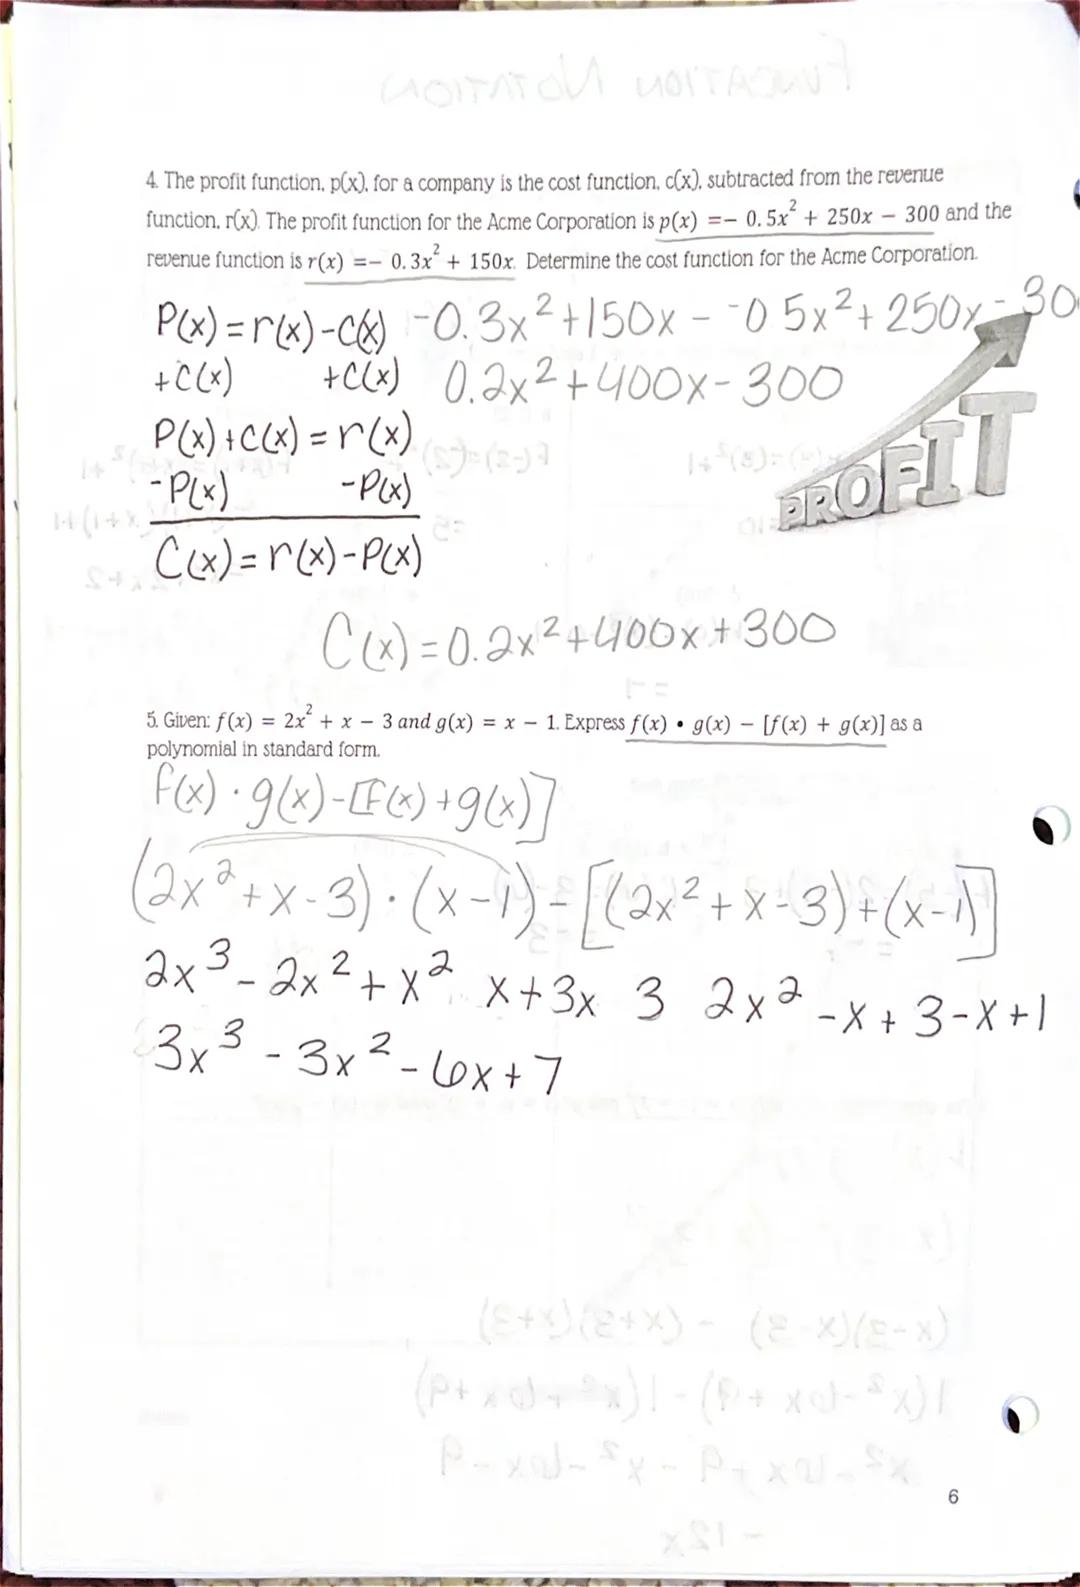 4. The profit function, p(x), for a company is the cost function, c(x), subtracted from the revenue
function, r(x). The profit function for the Acme Corporation is p(x) =− 0.5x² + 250x − 300 and the
revenue function is r(x) =− 0.3x² + 150x. Determine the cost function for the Acme Corporation.
P(x) = r(x) - C(x) -0.3x² + 150x - -0.5x² + 250x - 30
+C(x) +C(x) 0.2x² + 400x - 300
P(x) + C(x) = r(x)
-P(x) -P(x)
C(x) = r(x) - P(x)
PROFIT
C(x) = 0.2x² + 400x + 300
5. Given: f(x) = 2x² + x − 3 and g(x) = x − 1. Express f(x) • g(x) − [f(x) + g(x)] as a
polynomial in standard form.
f(x) · g(x) - [f(x) + g(x)]
(2x² + x - 3) · (x - 1) - [(2x² + x - 3) + (x - 1)]
2x³ - 2x² + x² x + 3x 3 2x² - x + 3 - x + 1
3x³ - 3x² - 6x + 7
6